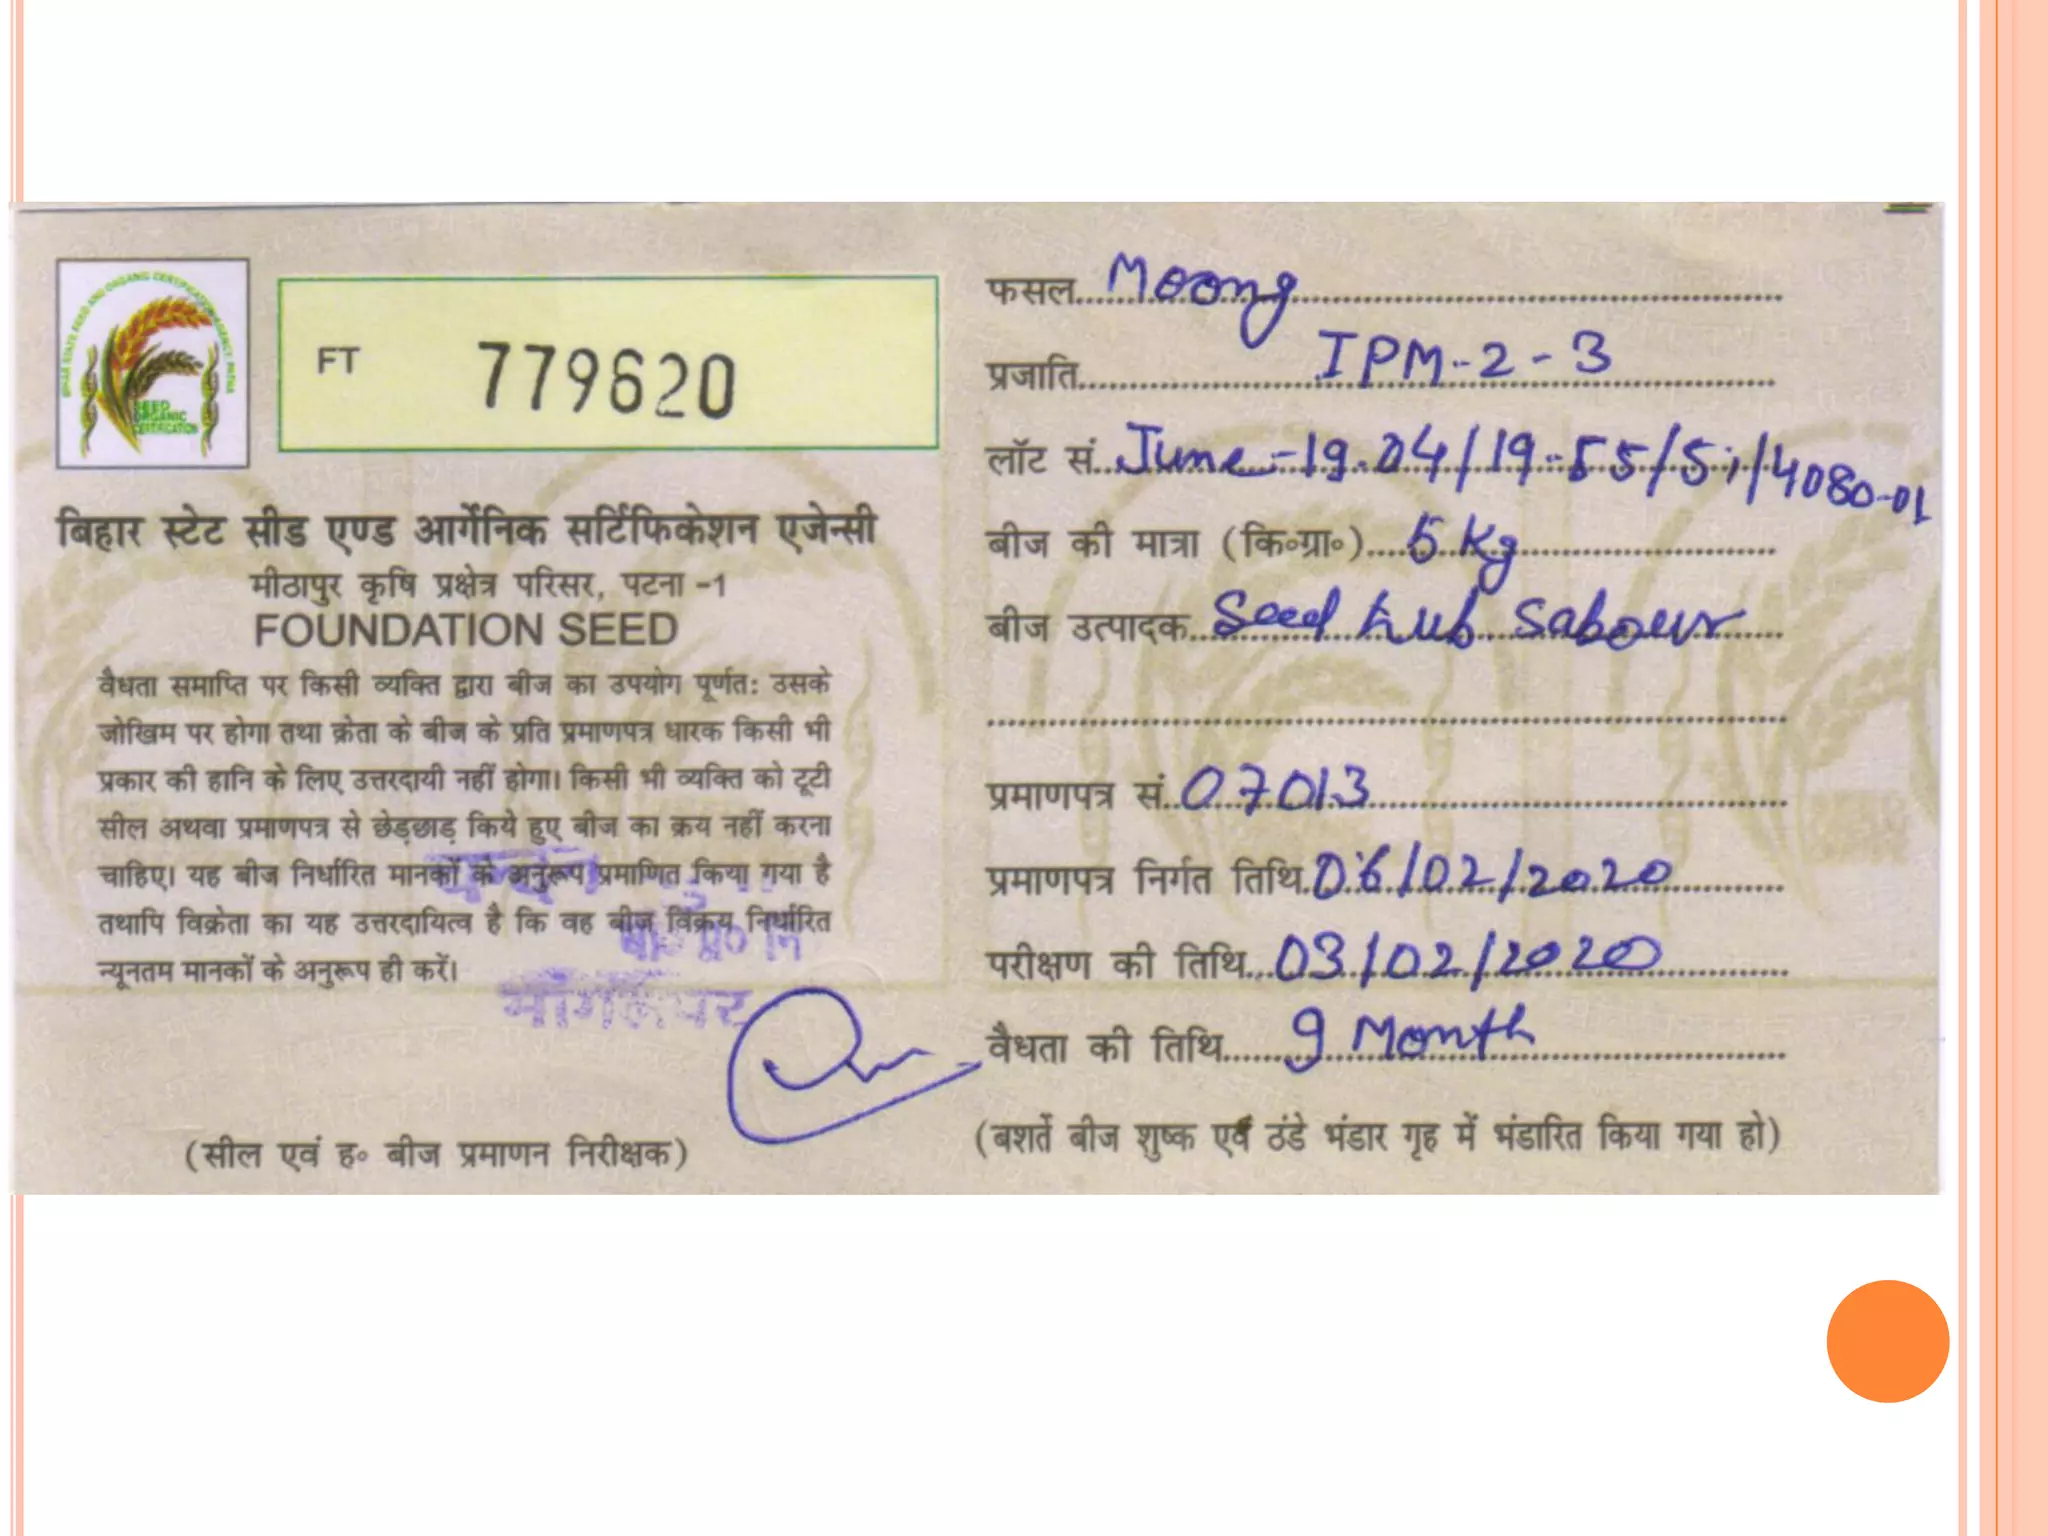 BIHAR STATE SEED AND ORGANIC CERTIFICATION AGENCY PATNA
SEED
ORGANIC
CERTIFICATION
FT 779620
बिहार स्टेट सीड एण्ड आर्गेनिक सर्टिफिकेशन एजेन्सी
मीठापुर कृषि प्रक्षेत्र परिसर, पटना -1
FOUNDATION SEED
वैधता समाप्ति पर किसी व्यक्ति द्वारा बीज का उपयोग पूर्णतः उसके
जोखिम पर होगा तथा क्रेता के बीज के प्रति प्रमाणपत्र धारक किसी भी
प्रकार की हानि के लिए उत्तरदायी नहीं होगा। किसी भी व्यक्ति को टूटी
सील अथवा प्रमाणपत्र से छेड़छाड़ किये हुए बीज का क्रय नहीं करना
चाहिए। यह बीज निर्धारित मानकों के अनुरूप प्रमाणित किया गया है
तथापि विक्रेता का यह उत्तरदायित्व है कि वह बीज विक्रय निर्धारित
न्यूनतम मानकों के अनुरूप ही करें।
(सील एवं ह॰ बीज प्रमाणन निरीक्षक)
फसल Moong
प्रजाति IPM-2-3
लॉट सं. June-19-04/19-55/51/4080-01
बीज की मात्रा (कि॰ग्रा॰) 5 Kg
बीज उत्पादक Seed hub Sabour
प्रमाणपत्र सं. 07013
प्रमाणपत्र निर्गत तिथि 06/02/2020
परीक्षण की तिथि 03/02/2020
वैधता की तिथि 9 Month
(बशर्ते बीज शुष्क एवं ठंडे भंडार गृह में भंडारित किया गया हो)